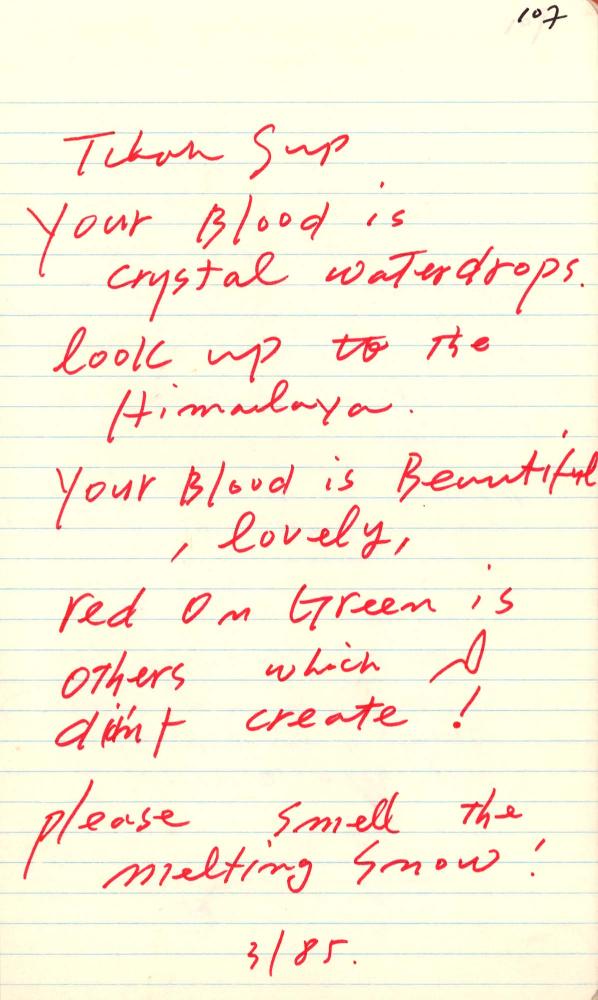 107
Sup
Your Blood is
crystal waterdrops.
look up to the
Himalaya.
Your Blood is Beautiful
, lovely,
red on Green is
others which I
didn't create !
please smell the
melting snow !
3/85.